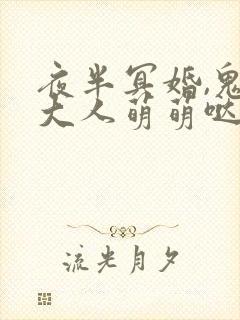 夜半冥婚,鬼
大人萌萌哒
流光月夕